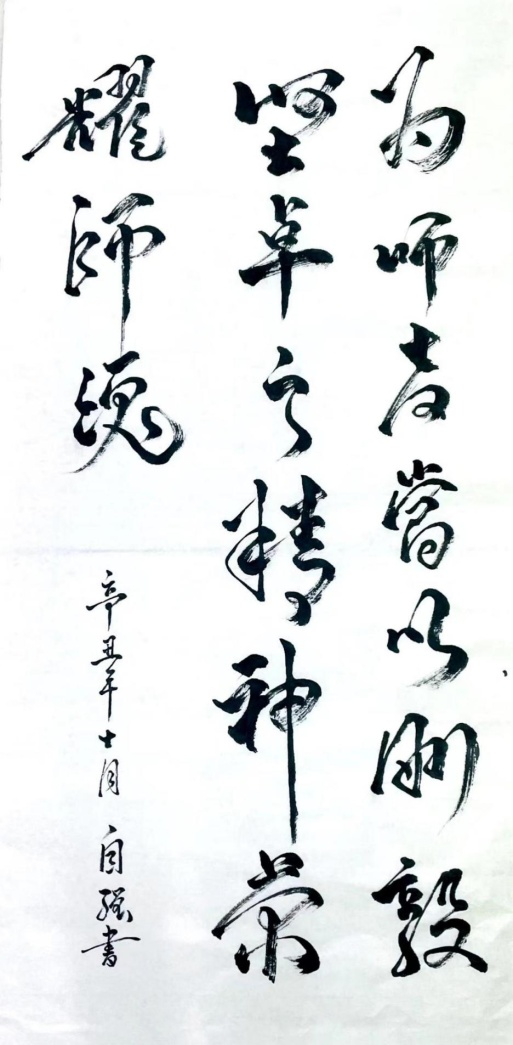 为师者当以刚毅
坚卓之精神荣
耀师魂
辛丑年十月 自强书